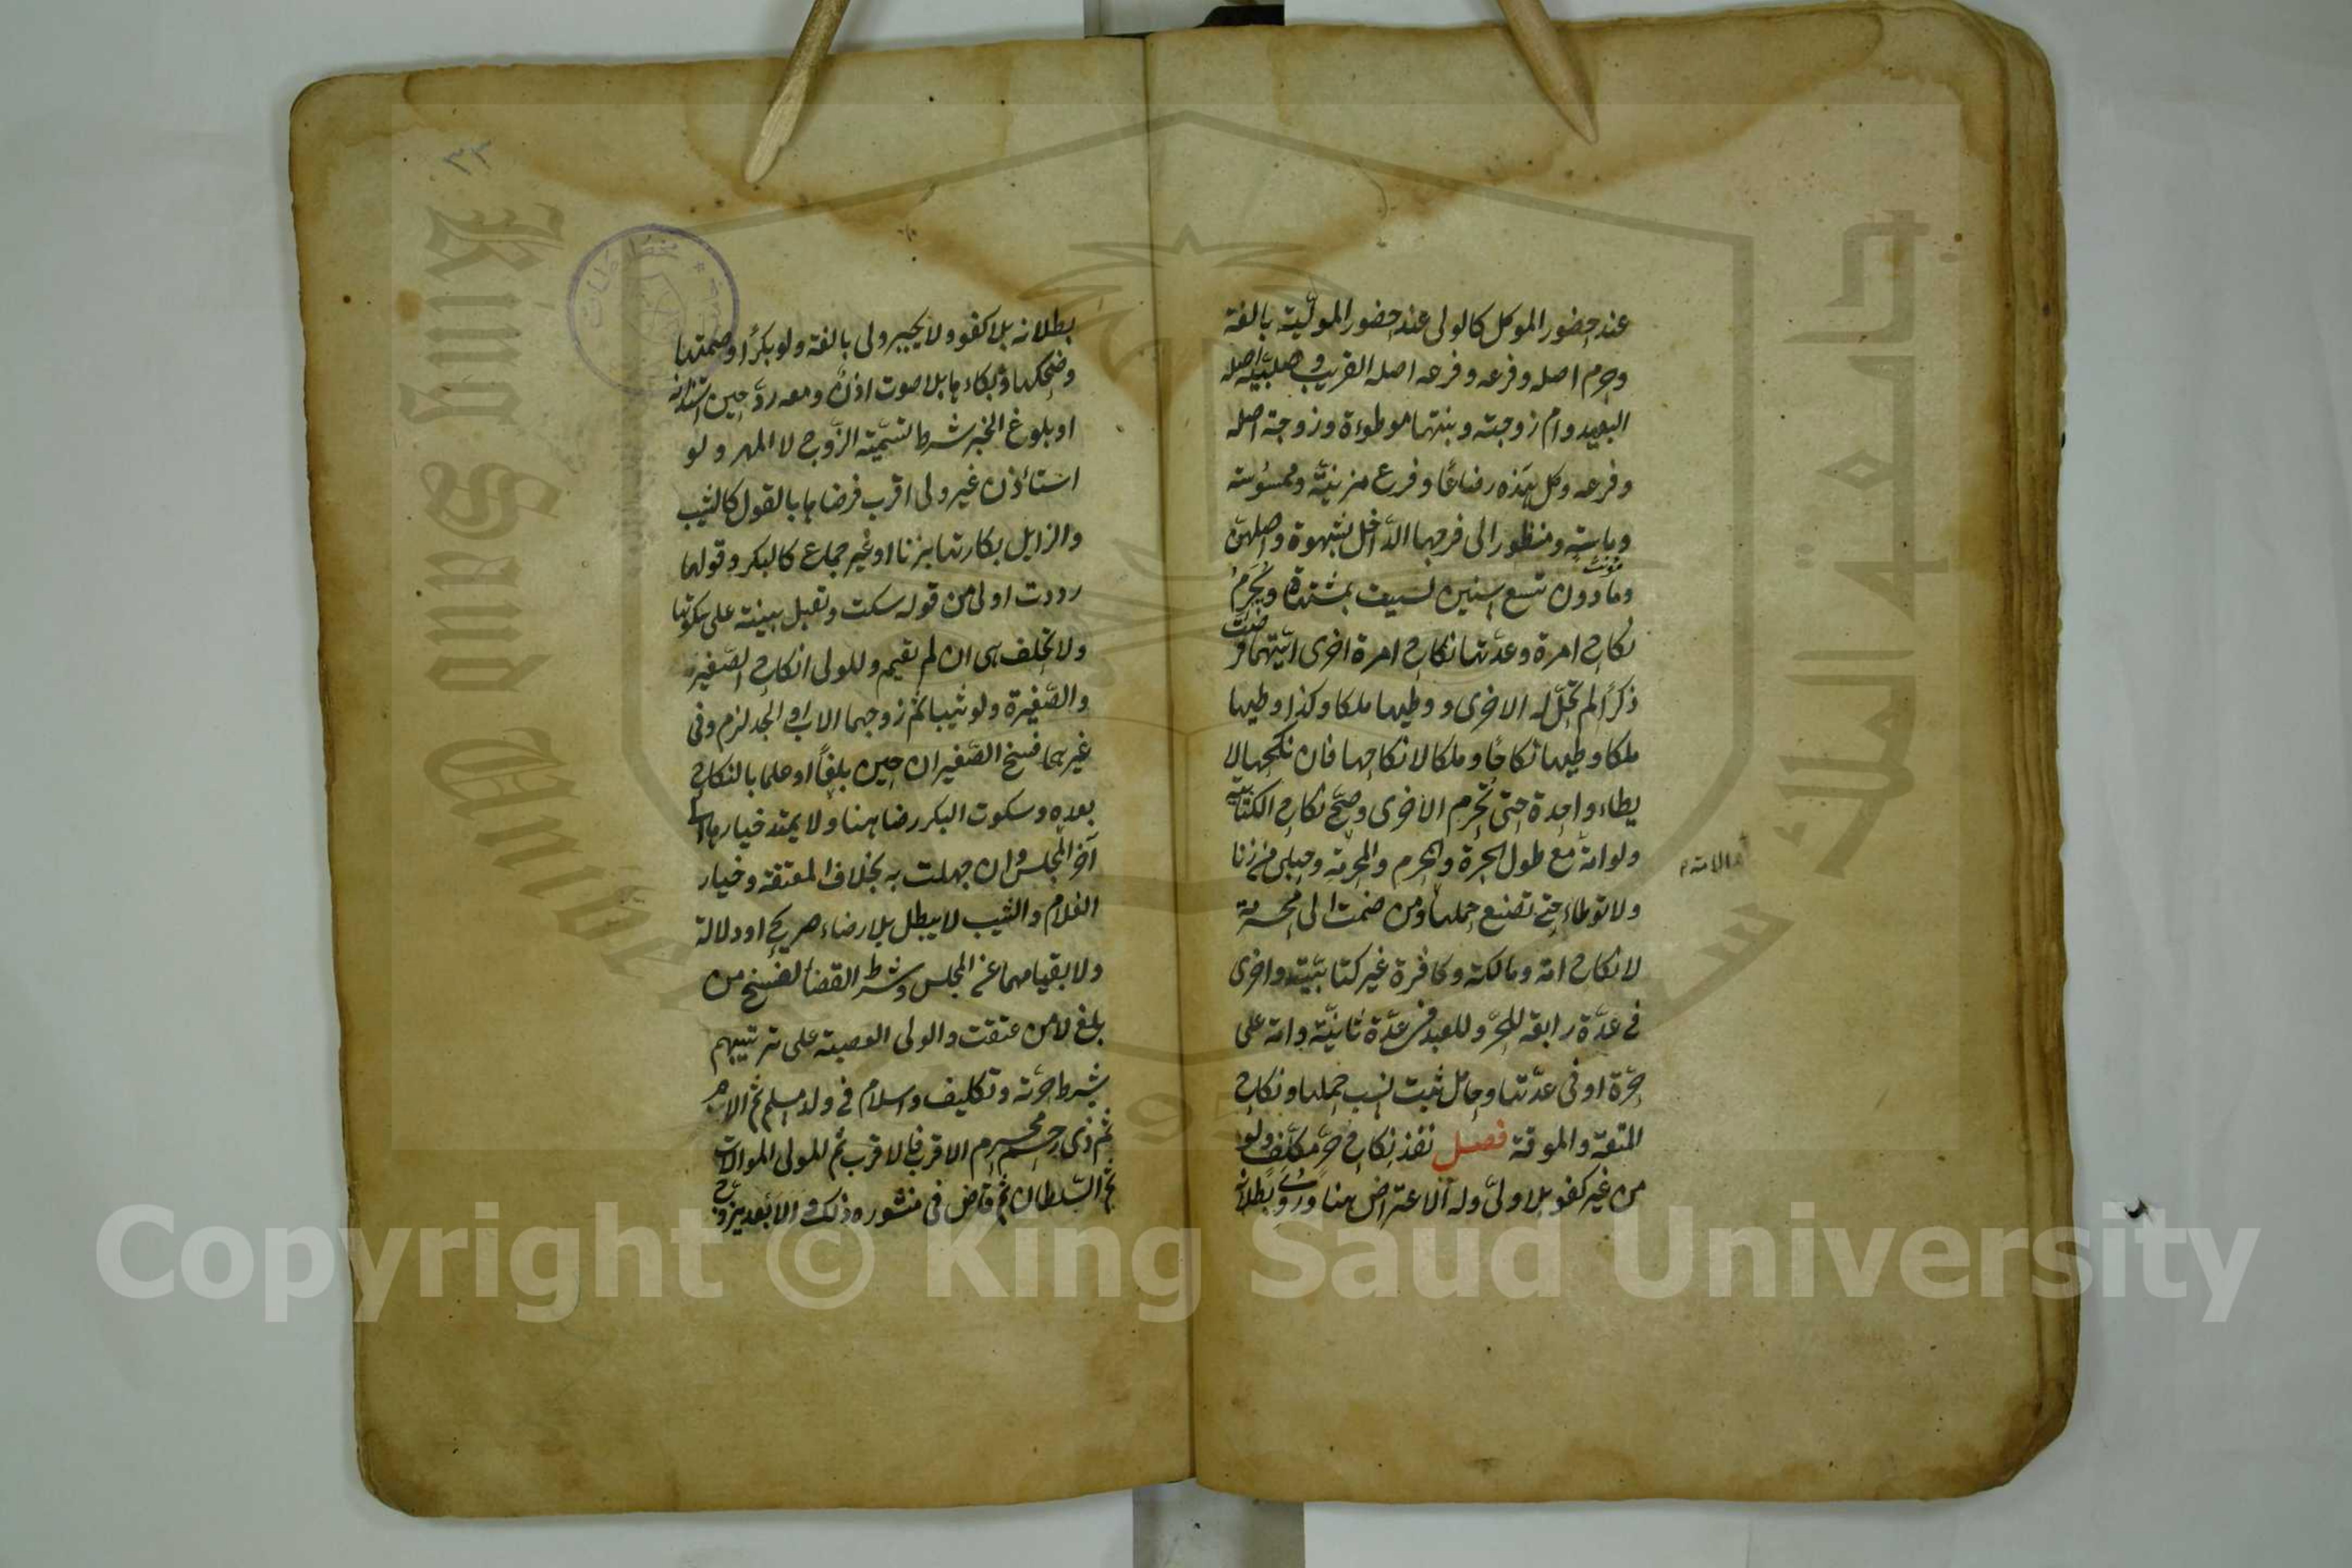 عند حضور الموكل كالولى عند حضور المولّية بالغة
وحرم اصله وفرعه وفرعه اصله القريب وصلبيّة اصله
البعيد وام زوجته وبنتها موطوءة وزوجة اصله
وفرعه وكل هذه رضاعًا وفرع مزنيّة وممسوسته
وماسته ومنظور الى فرجها الدّاخل بشهوة واصلهنّ
وما دون تسع سنين ليست بمشتهاة ويحرم
نكاح امرة وعدّتها نكاح امرة اخرى ايّتهما فرضت
ذكرًا لم تحلّ له الاخرى ووطيها ملكا وكذا وطيها
ملكا وطيها نكاحًا وملكا لا نكاحها فان نكحها لا
يطاء واحدة حتى تحرم الاخرى وصحّ نكاح الكتابيّة
ولو امة مع طول الحرة والمحرم والمحرمة وحبلى من زنا
ولا توطاء حتى تضع حملها ومن ضمت الى محرمة
لا نكاح امة ومالكته وكافرة غير كتابيّة واخرى
فى عدّة رابعة للحرّ وللعبد فى عدّة ثانيّة وامة على
حرّة او فى عدّتها وحامل ثبت نسب حملها ونكاح
المتعة والموقة فصل نفذ نكاح حرّة مكلّفة ولو
من غير كفو بلا ولىّ وله الاعتراض هنا وروى بطلانه
بطلانه بلا كفو ولا يجبر ولى بالغة ولو بكرًا وصمتها
وضحكها وبكاءها بلا صوت اذنٌ ومعه ردّ حين استئذانه
او بلوغ الخبر شرط تسميّة الزّوج لا المهر ولو
استأذن غير ولى اقرب فرضاها بالقول كالثيب
والزايل بكارتها بزنا او غير جماع كالبكر وقولها
رددت اولى من قوله سكت وتقبل بينته على سكوتها
ولا تحلف هى ان لم تقيم وللولى انكاح الصّغير
والصّغيرة ولو ثيبا ثم زوجهما الاب او الجد لزم وفى
غيرهما فسخ الصّغيران حين بلغًا او علما بالنكاح
بعده وسكوت البكر رضا هنا ولا يمتد خيارها الى
آخر المجلس وان جهلت به بخلاف المعتقة وخيار
الغلام والثيب لا يبطل بلا رضاء صريح او دلالة
ولا بقيامهما عن المجلس وشرط القضا لفسخ من
بلغ لا من عتقت والولى العصبة على ترتيبهم
بشرط حرّية وتكليف واسلام فى ولد مسلم ثم الام
ثم ذى رحم محرم الاقرب فالاقرب ثم للمولى الموالات
ثم السّلطان ثم قاض فى منشوره ذلك والابعد يزوج